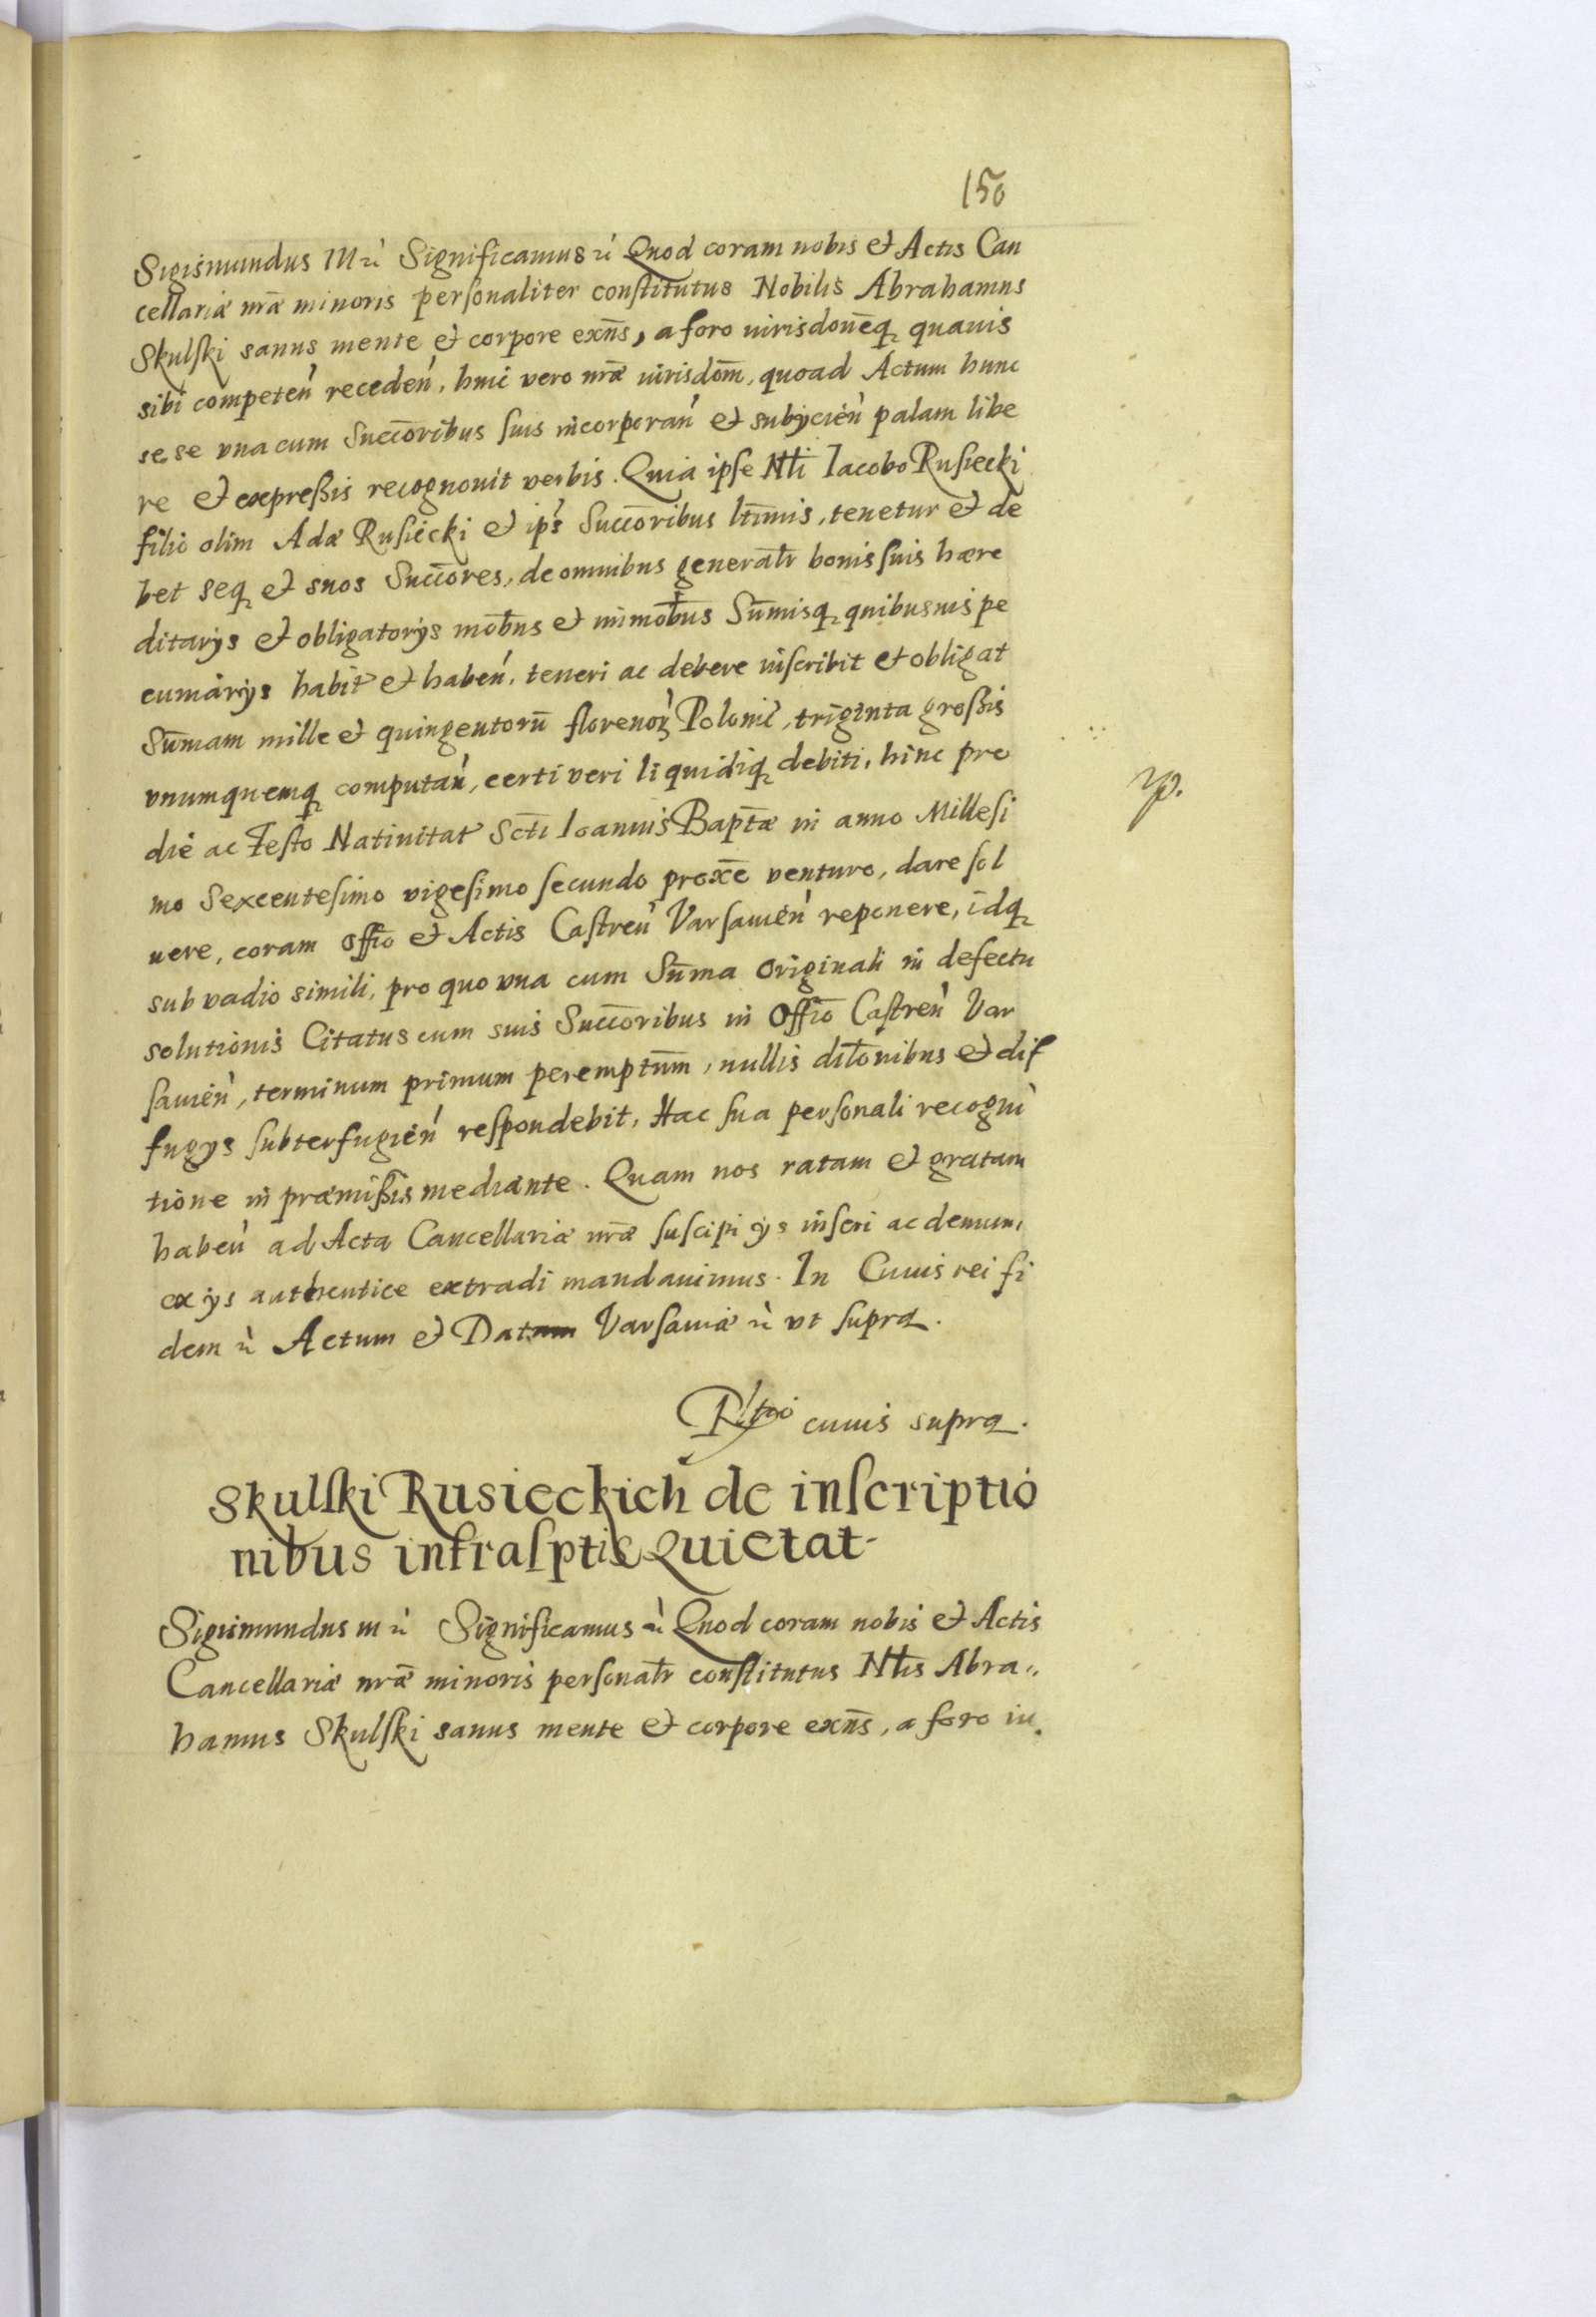 150
Sigismundus III ꝛc̀ Significamus ꝛc̀ Quod coram nobis et Actis Can
cellariæ nr̄æ minoris personaliter constitutus Nobilis Abrahamus
Skulski sanus mente et corpore exn̄s, a foro iurisdon̄eq quauis
sibi competeń receden̍, huic vero nr̄æ iurisdōm, quoad Actum hunc
sese vna cum Succōribus suis incorporań et subycień palam libe
re et expreßis recognouit verbis. Quia ipse Nłi Iacobo Rusiecki
filio olim Adæ Rusiecki et ips̍ Succōribus ltīmis, tenetur et de
bet seq et suos Succōres, de omnibus generalr̄ bonis suis hære
ditarys et obligatorys mob̄us et immob̄us Sūmisq quibusuis pe
cumarys habit et habeń, teneri ac debere inscribit et obligat
Sūmam mille et quingentorū florenoꝝ Polonić, triginta großis
vnumquemq computań, certi veri liquidiq debiti, hinc pro
die ac Festo Natiuitat Sctī Ioannis Bapt̄æ in anno Millesi
mo Sexcentesimo vigesimo secundo proxē venturo, dare sol
uere, coram Offīo et Actis Castreń Varsauień reponere, idq
sub vadio simili, pro quo vna cum Sūma originali in defectu
solutionis Citatus cum suis Succōribus in Offīo Castreń Var
sauień, terminum primum peremptūm, nullis dilōnibus et dif
fugys subterfugień respondebit, Hac sua personali recogni
tione in præmißis mediante. Quam nos ratam et gratam
habeń ad Acta Cancellariæ nr̄æ suscipi ys inscri ac demum,
ex ys authentice extradi mandauimus. In Cuius rei fi
dem ꝛc̀ Actum et Datam Varsauiæ ꝛc̀ vt supra.
Rltio cuius supra.
Skulski Rusieckich de inscriptio
nibus infrasptis Quietat
Sigismundus III ꝛc̀ Significamus ꝛc̀ Quod coram nobis et Actis
Cancellariæ nr̄æ minoris personalr̄ constitutus Nłis Abra„
hamus Skulski sanus mente et corpore exn̄s, a foro iu.